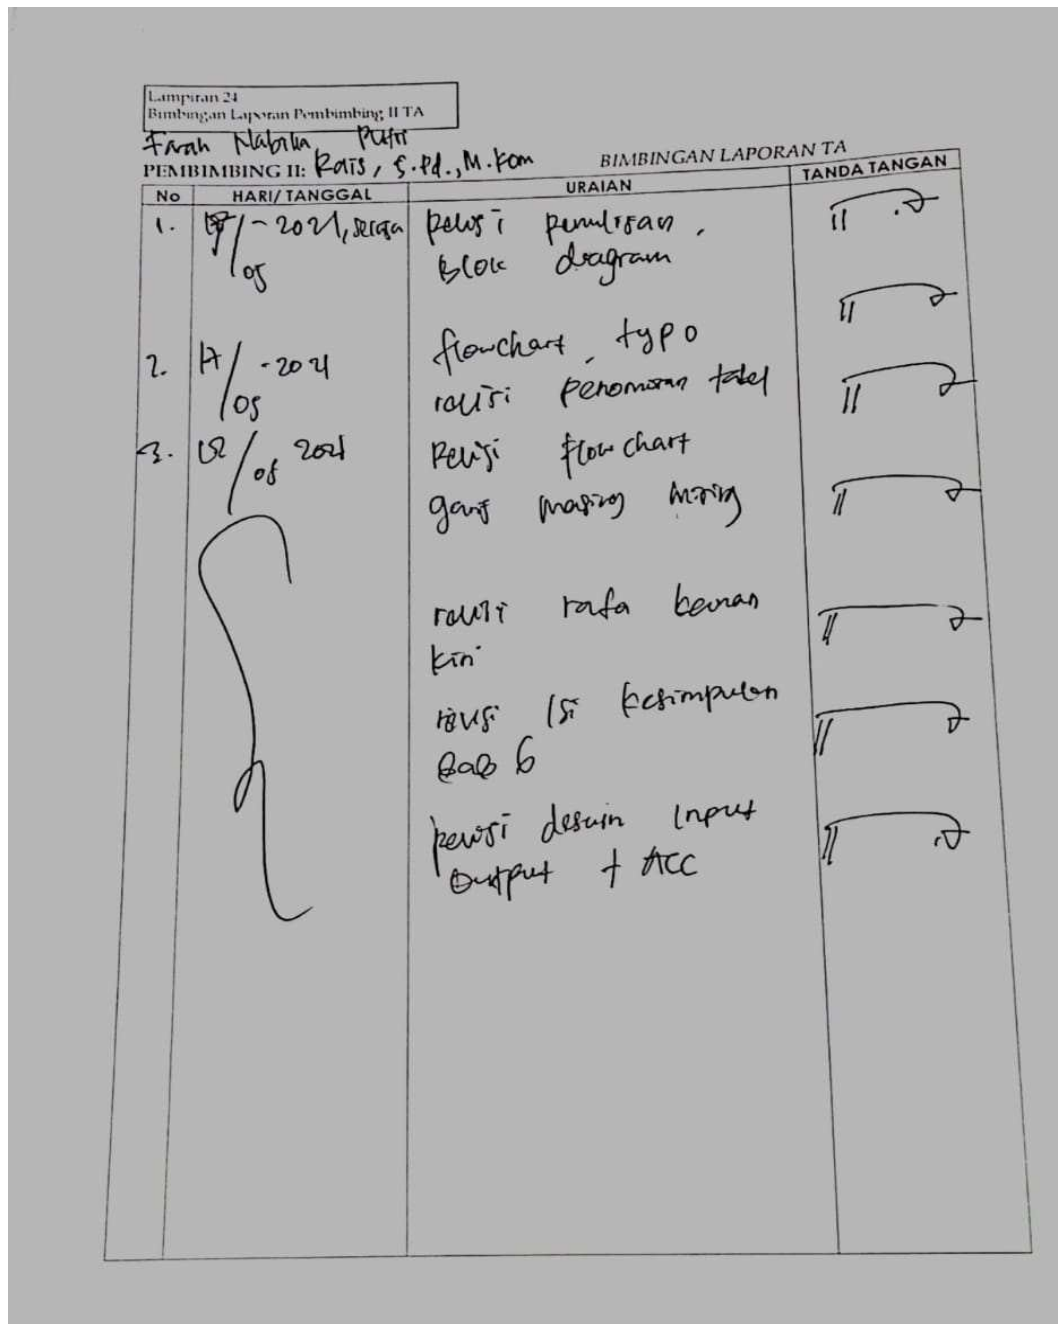 Lampiran 24
Bimbingan Laporan Pembimbing II TA
Farah Nabila Putri
PEMBIMBING II: Rais, S.Pd., M.Kom
BIMBINGAN LAPORAN TA
No HARI/ TANGGAL URAIAN TANDA TANGAN
1. /05 - 2021, selasa revisi penulisan,
Blok diagram
flowchart, typo
2. 17/05 - 2021
revisi penomoran tabel
3. /05 2021 Revisi flowchart
garis masing miring
revisi rata kanan
kiri
revisi isi kesimpulan
Bab 6
revisi desain Input
Output + ACC